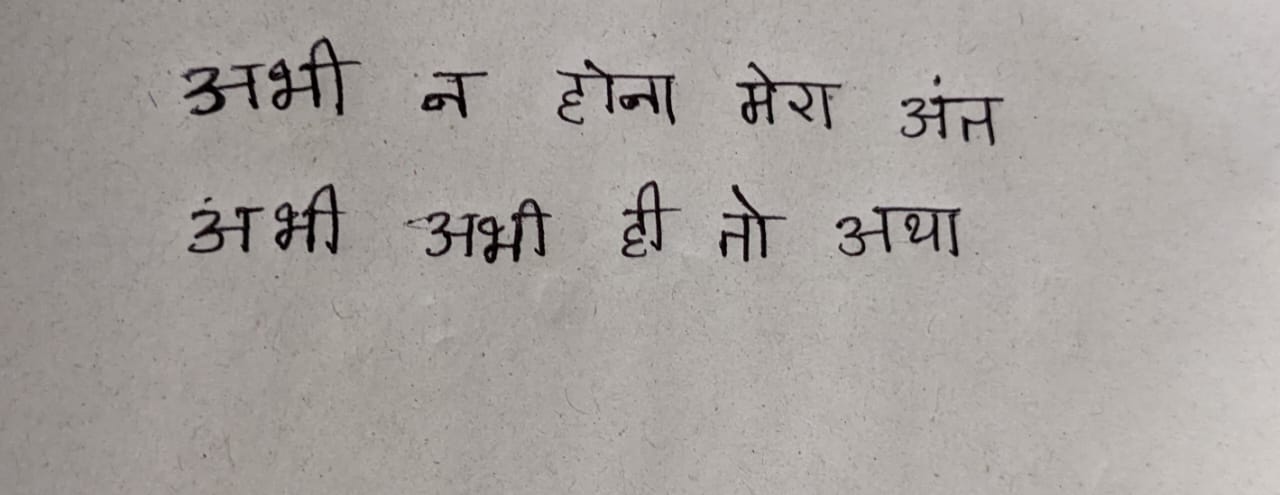 अभी न होना मेरा अंत
अंभी अभी ही तो अथा